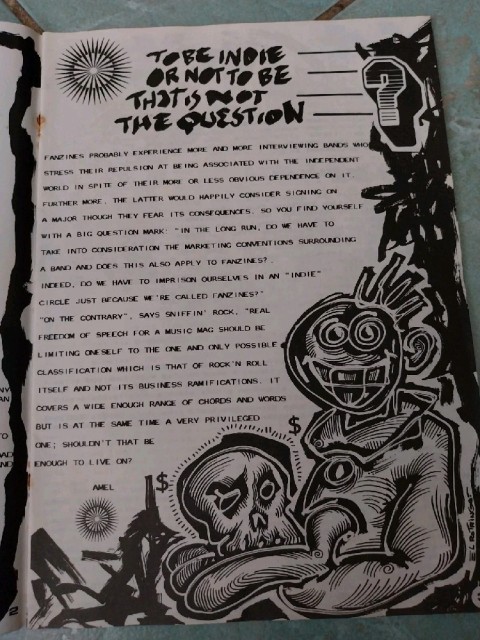 TO BE INDIE
OR NOT TO BE
THAT IS NOT
THE QUESTION
?
FANZINES PROBABLY EXPERIENCE MORE AND MORE INTERVIEWING BANDS WHO
STRESS THEIR REPULSION AT BEING ASSOCIATED WITH THE INDEPENDENT
WORLD IN SPITE OF THEIR MORE OR LESS OBVIOUS DEPENDENCE ON IT.
FURTHER MORE, THE LATTER WOULD HAPPILY CONSIDER SIGNING ON
A MAJOR THOUGH THEY FEAR ITS CONSEQUENCES. SO YOU FIND YOURSELF
WITH A BIG QUESTION MARK: "IN THE LONG RUN, DO WE HAVE TO
TAKE INTO CONSIDERATION THE MARKETING CONVENTIONS SURROUNDING
A BAND AND DOES THIS ALSO APPLY TO FANZINES?.
INDEED, DO WE HAVE TO IMPRISON OURSELVES IN AN "INDIE"
CIRCLE JUST BECAUSE WE'RE CALLED FANZINES?"
"ON THE CONTRARY", SAYS SNIFFIN' ROCK, "REAL
FREEDOM OF SPEECH FOR A MUSIC MAG SHOULD BE
LIMITING ONESELF TO THE ONE AND ONLY POSSIBLE
CLASSIFICATION WHICH IS THAT OF ROCK'N ROLL
ITSELF AND NOT ITS BUSINESS RAMIFICATIONS. IT
COVERS A WIDE ENOUGH RANGE OF CHORDS AND WORDS
BUT IS AT THE SAME TIME A VERY PRIVILEGED
ONE; SHOULDN'T THAT BE
ENOUGH TO LIVE ON?
AMEL
$ $